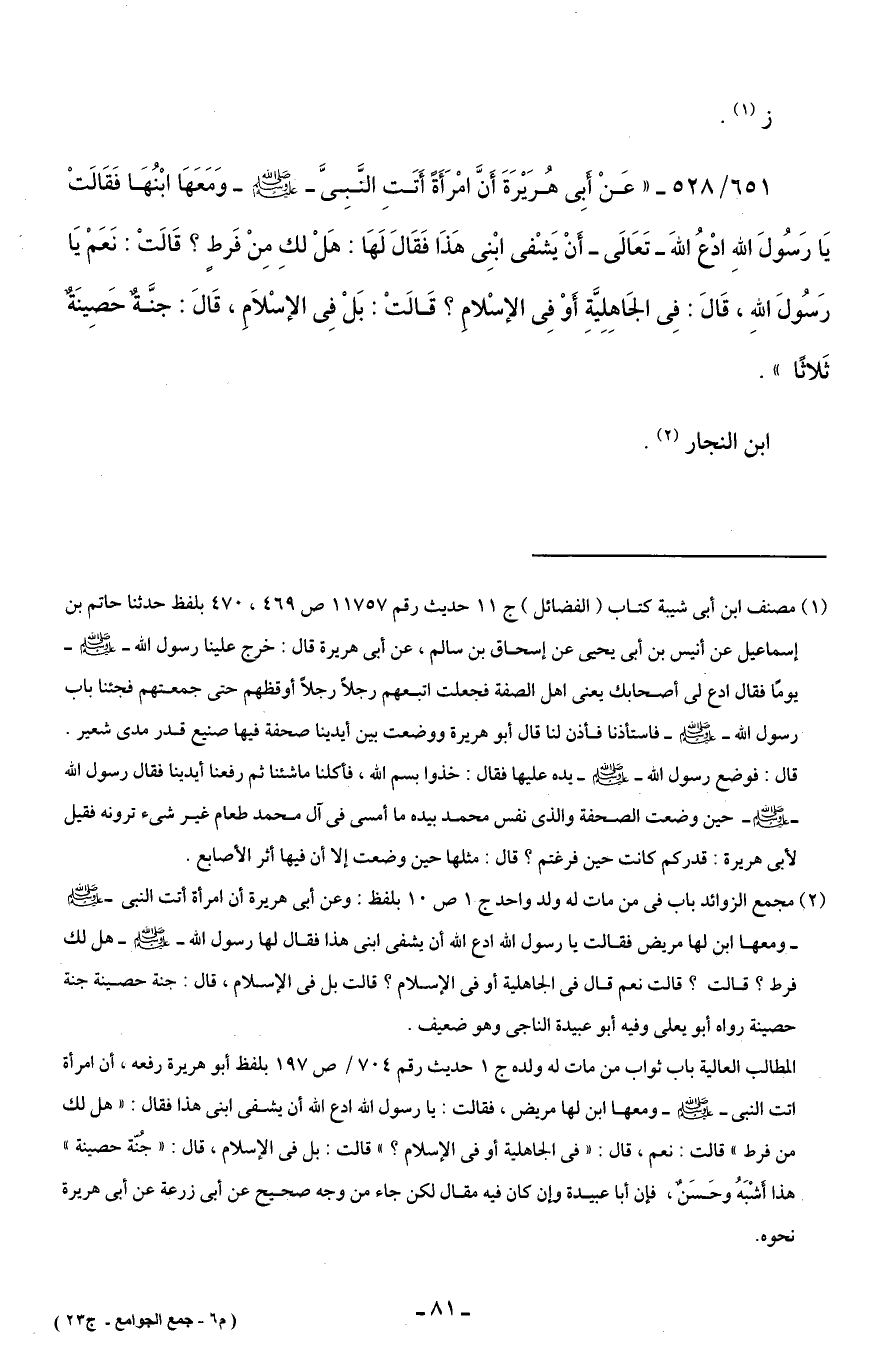 ز (١) .
٥٢٨/٦٥١ ـ « عَـنْ أَبِى هُـرَيْرَةَ أَنَّ امْرَأَةً أَتَـتِ النَّـبِـىَّ ـ ﷺ ـ وَمَعَهَا ابْنُهَـا فَقَالَتْ
يَا رَسُولَ اللهِ ادْعُ اللهَ ـ تَعَالَى ـ أَنْ يَشْفى ابْنِى هَذَا فَقَالَ لَهَا : هَلْ لكِ مِنْ فَرطٍ ؟ قَالَتْ : نَعَمْ يَا
رَسُولَ اللهِ ، قَالَ : فِى الجَاهِلِيَّةِ أَوْ فِى الإسْلامِ ؟ قَـالَتْ : بَلْ فِى الإسْلاَمِ ، قَالَ : جنَّـةٌ حَصِينَةٌ
ثَلاثًا » .
ابن النجار (٢) .
(١) مصنف ابن أبى شيبة كتـاب ( الفضائل ) ج ١١ حديث رقم ١١٧٥٧ ص ٤٦٩ ، ٤٧٠ بلفظ حدثنا حاتم بن
إسماعيل عن أنيس بن أبى يحيى عن إسحـاق بن سالم ، عن أبى هريرة قال : خرج علينا رسول الله ـ ﷺ ـ
يومًا فقال ادع لى أصـحابك يعنى اهل الصفة فجعلت اتبـعهم رجلاً رجلاً أوقظهم حتى جمعـتهم فجئنا باب
رسول الله ـ ﷺ ـ فاستأذنا فـأذن لنا قال أبو هريرة ووضعت بين أيدينا صحفة فيها صنيع قـدر مدى شعير .
قال : فوضع رسول الله ـ ﷺ ـ يده عليها فقال : خذوا بسم الله ، فأكلنا ماشئنا ثم رفعنا أيدينا فقال رسول الله
ـ ﷺ ـ حين وضعت الصـحفة والذى نفس محمـد بيده ما أمسى فى آل محمد طعام غيـر شىء ترونه فقيل
لأبى هريرة : قدركم كانت حين فرغتم ؟ قال : مثلها حين وضعت إلا أن فيها أثر الأصابع .
(٢) مجمع الزوائد باب فى من مات له ولد واحد ج ١ ص ١٠ بلفظ : وعن أبى هريرة أن امرأة أتت النبى ـ ﷺ
ـ ومعهـا ابن لها مريض فقـالت يا رسول الله ادع الله أن يشفى ابنى هذا فقـال لها رسول الله ـ ﷺ ـ هل لك
فرط ؟ قـالت ؟ قالت نعم قـال فى الجاهلية أو فى الإسـلام ؟ قالت بل فى الإسـلام ، قال : جنة حصـينة جنة
حصينة رواه أبو يعلى وفيه أبو عبيدة الناجى وهو ضعيف .
المطالب العالية باب ثواب من مات له ولده ج ١ حديث رقم ٧٠٤ / ص ١٩٧ بلفظ أبو هريرة رفعه ، أن امرأة
اتت النبى ـ ﷺ ـ ومعهـا ابن لها مريض ، فقالت : يا رسول الله ادع الله أن يشـفى ابنى هذا فقال : « هل لك
من فرط » قالت : نعم ، قال : « فى الجاهلية أو فى الإسلام ؟ » قالت : بل فى الإسلام ، قال : « جُنّة حصينة »
هذا أَشْبَهُ وحَـسَنٌ ، فإن أبا عبيدة وإن كان فيه مقال لكن جاء من وجه صحـيح عن أبى زرعة عن أبى هريرة
نحوه.
ـ ٨١ ـ
( م٦ ـ جمع الجوامع ـ ج٢٣ )